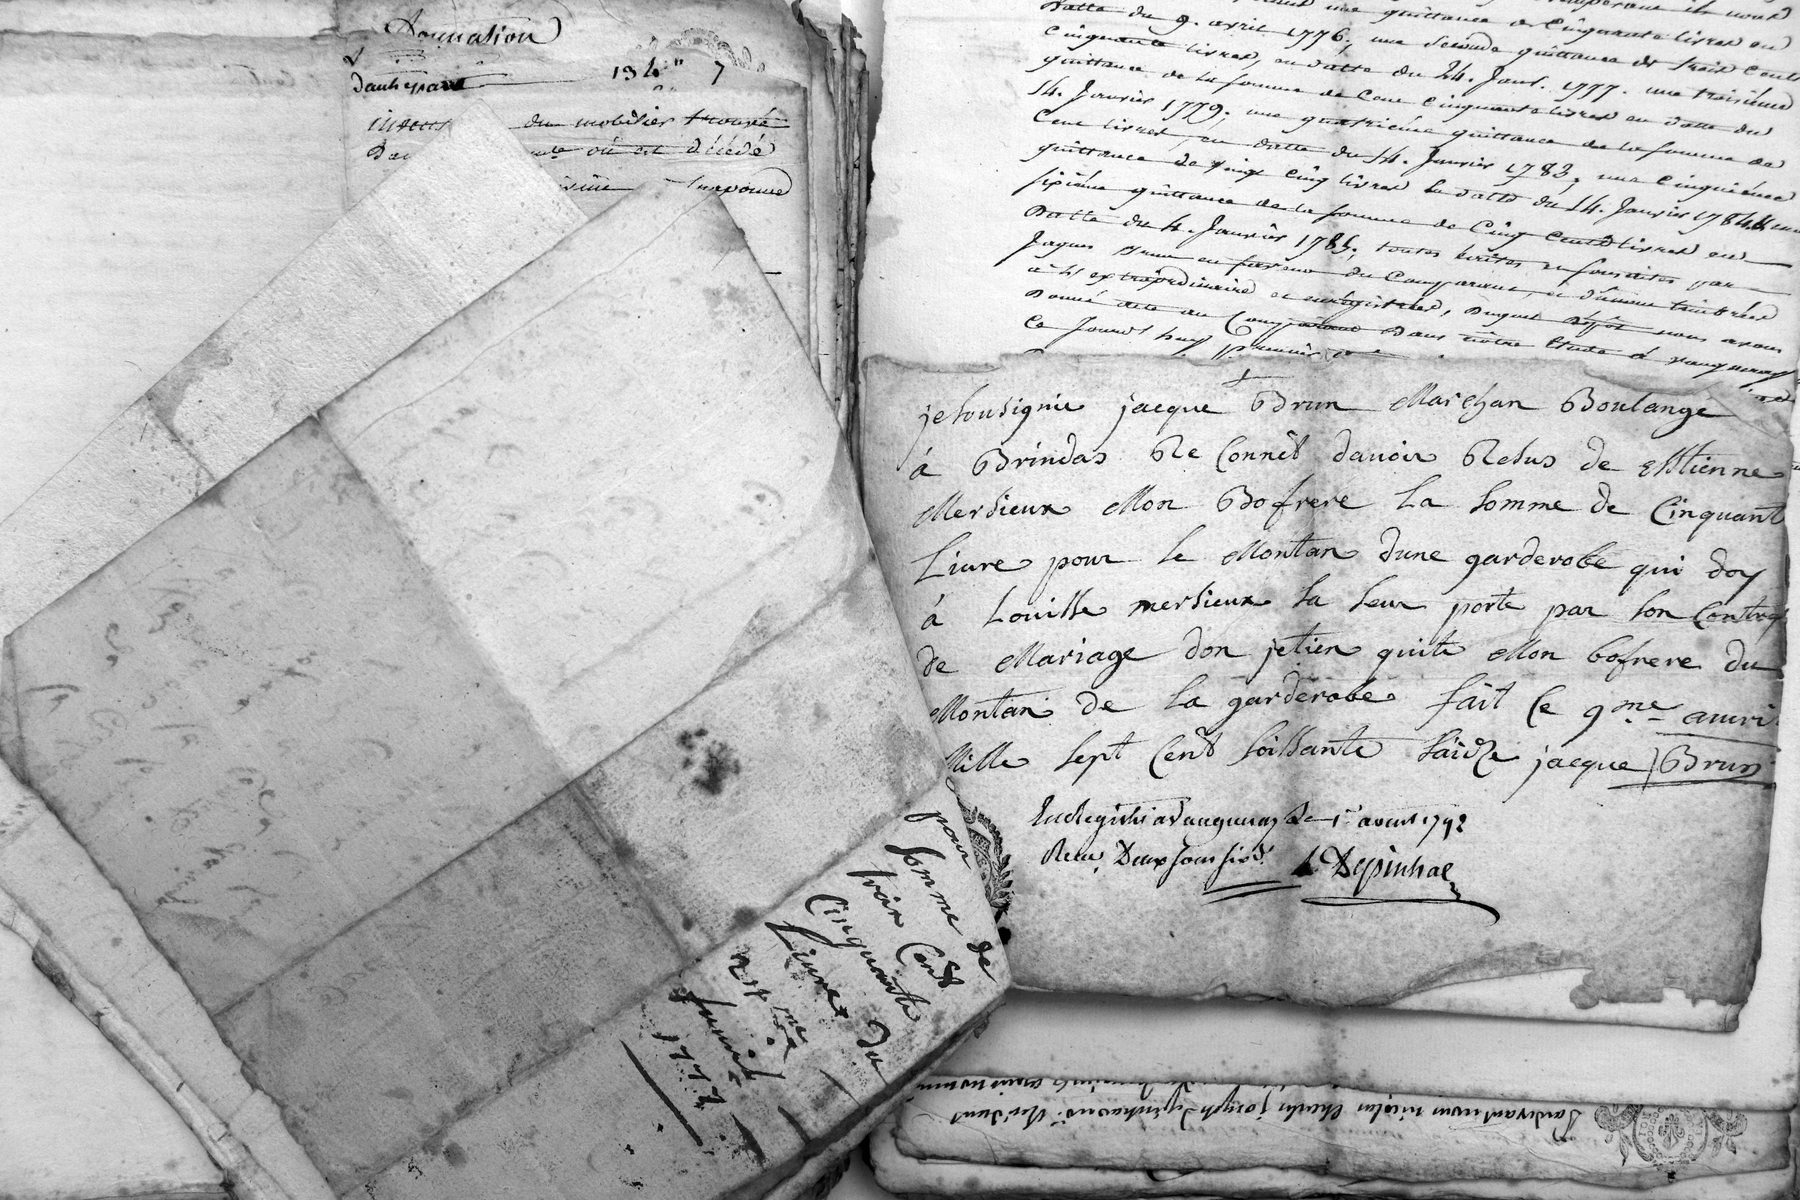 Donnation
134" 7
du mobilier trouvé
où est décédé
Datte du 9. avril 1776; une seconde quittance de trois Cents
Cinquante livres, en datte du 24. Janv. 1777. une troisième
quittance de la somme de Cent Cinquante livres en datte du
14. Janvier 1779; une quatrième quittance de la somme de
Cent livres, en datte du 14. Janvier 1783; une Cinquième
quittance de vingt Cinq livres en datte du 14. Janvier 1784
sixième quittance de la somme de Cinq Cents livres en
Datte du 4. Janvier 1785; toutes écrites et souscrites par
Jaques Brun en faveur du Comparant, et d'même timbrées
à l'extraordinaire et enregistrées, Duquel nous avons
Donné acte au Comparant Dans nôtre étude à
Ce Jourd'huy premier
je sousignie jacque Brun Marchan Boulange
à Brindas Re Connêt davoir Resus de Estienne
Mersieux Mon Bofrere La Somme de Cinquant
Livre pour le Montan dune garderobe qui doy
à Louisse mersieux sa seur porte par son Contrat
de Mariage don jetien quite Mon bofrere du
Montan de La garderobe fait Ce 9me avri
Mille sept Cent soissante saize jacque Brun
Enregistré a Vaugneray le 1er aoust 1792
Recu Deux sous six d. Depinhac
pour
somme de
trois Cent
Cinquante
Livre du
24me
Janvié
1777